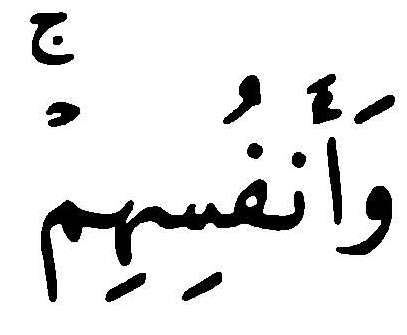 وَأَنفُسِهِمْۚ